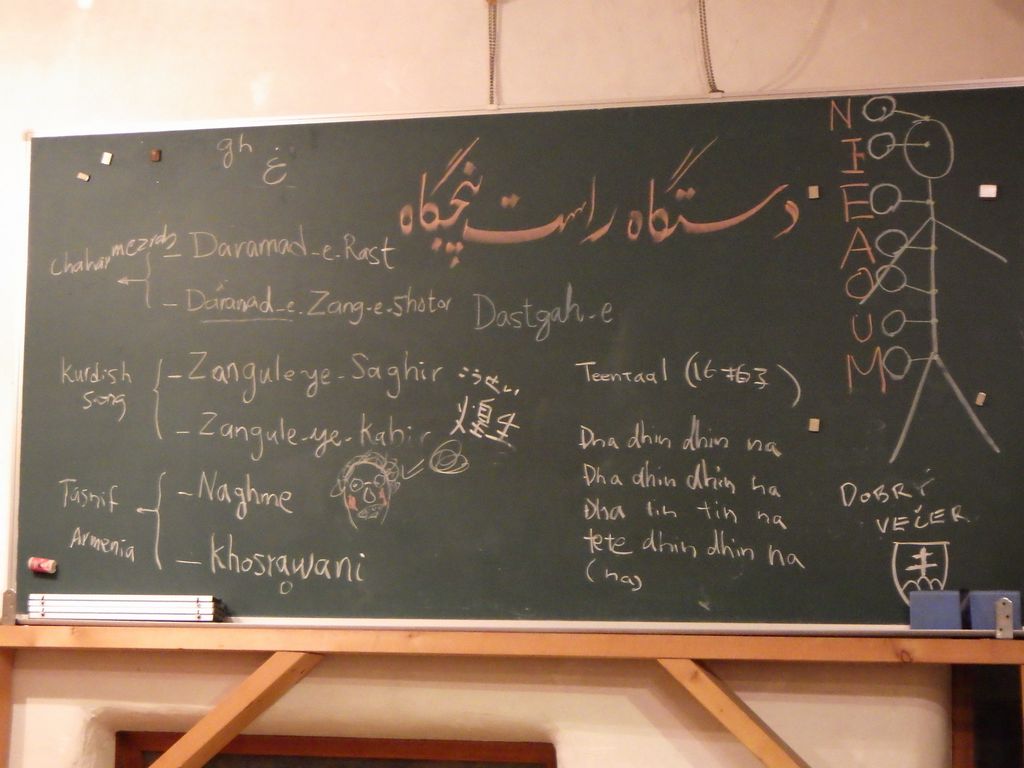 gh غ
دستگاه راست پنجگاه
Chahar mezrab
- Daramad-e-Rast
- Daramad-e-Zang-e-Shotor
Dastgah-e
Kurdish Song
- Zangule-ye-Saghir
- Zangule-ye-Kabir
こうせい
煌生
Tasnif
Armenia
- Naghme
- Khosrawani
Teentaal (16
Dha dhin dhin na
Dha dhin dhin na
Dha tin tin na
tete dhin dhin na
(na)
N
I
E
A
O
U
M
DOBRÝ
VEČER